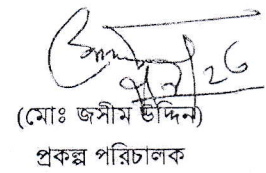 (মোঃ জসীম উদ্দিন)
প্রকল্প পরিচালক